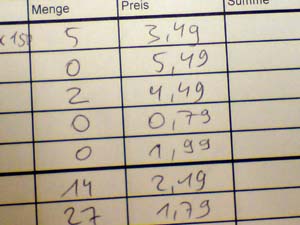 Menge Preis Summe
x150 5 3,49
0 5,49
2 4,49
0 0,79
0 1,99
14 2,19
27 1,79